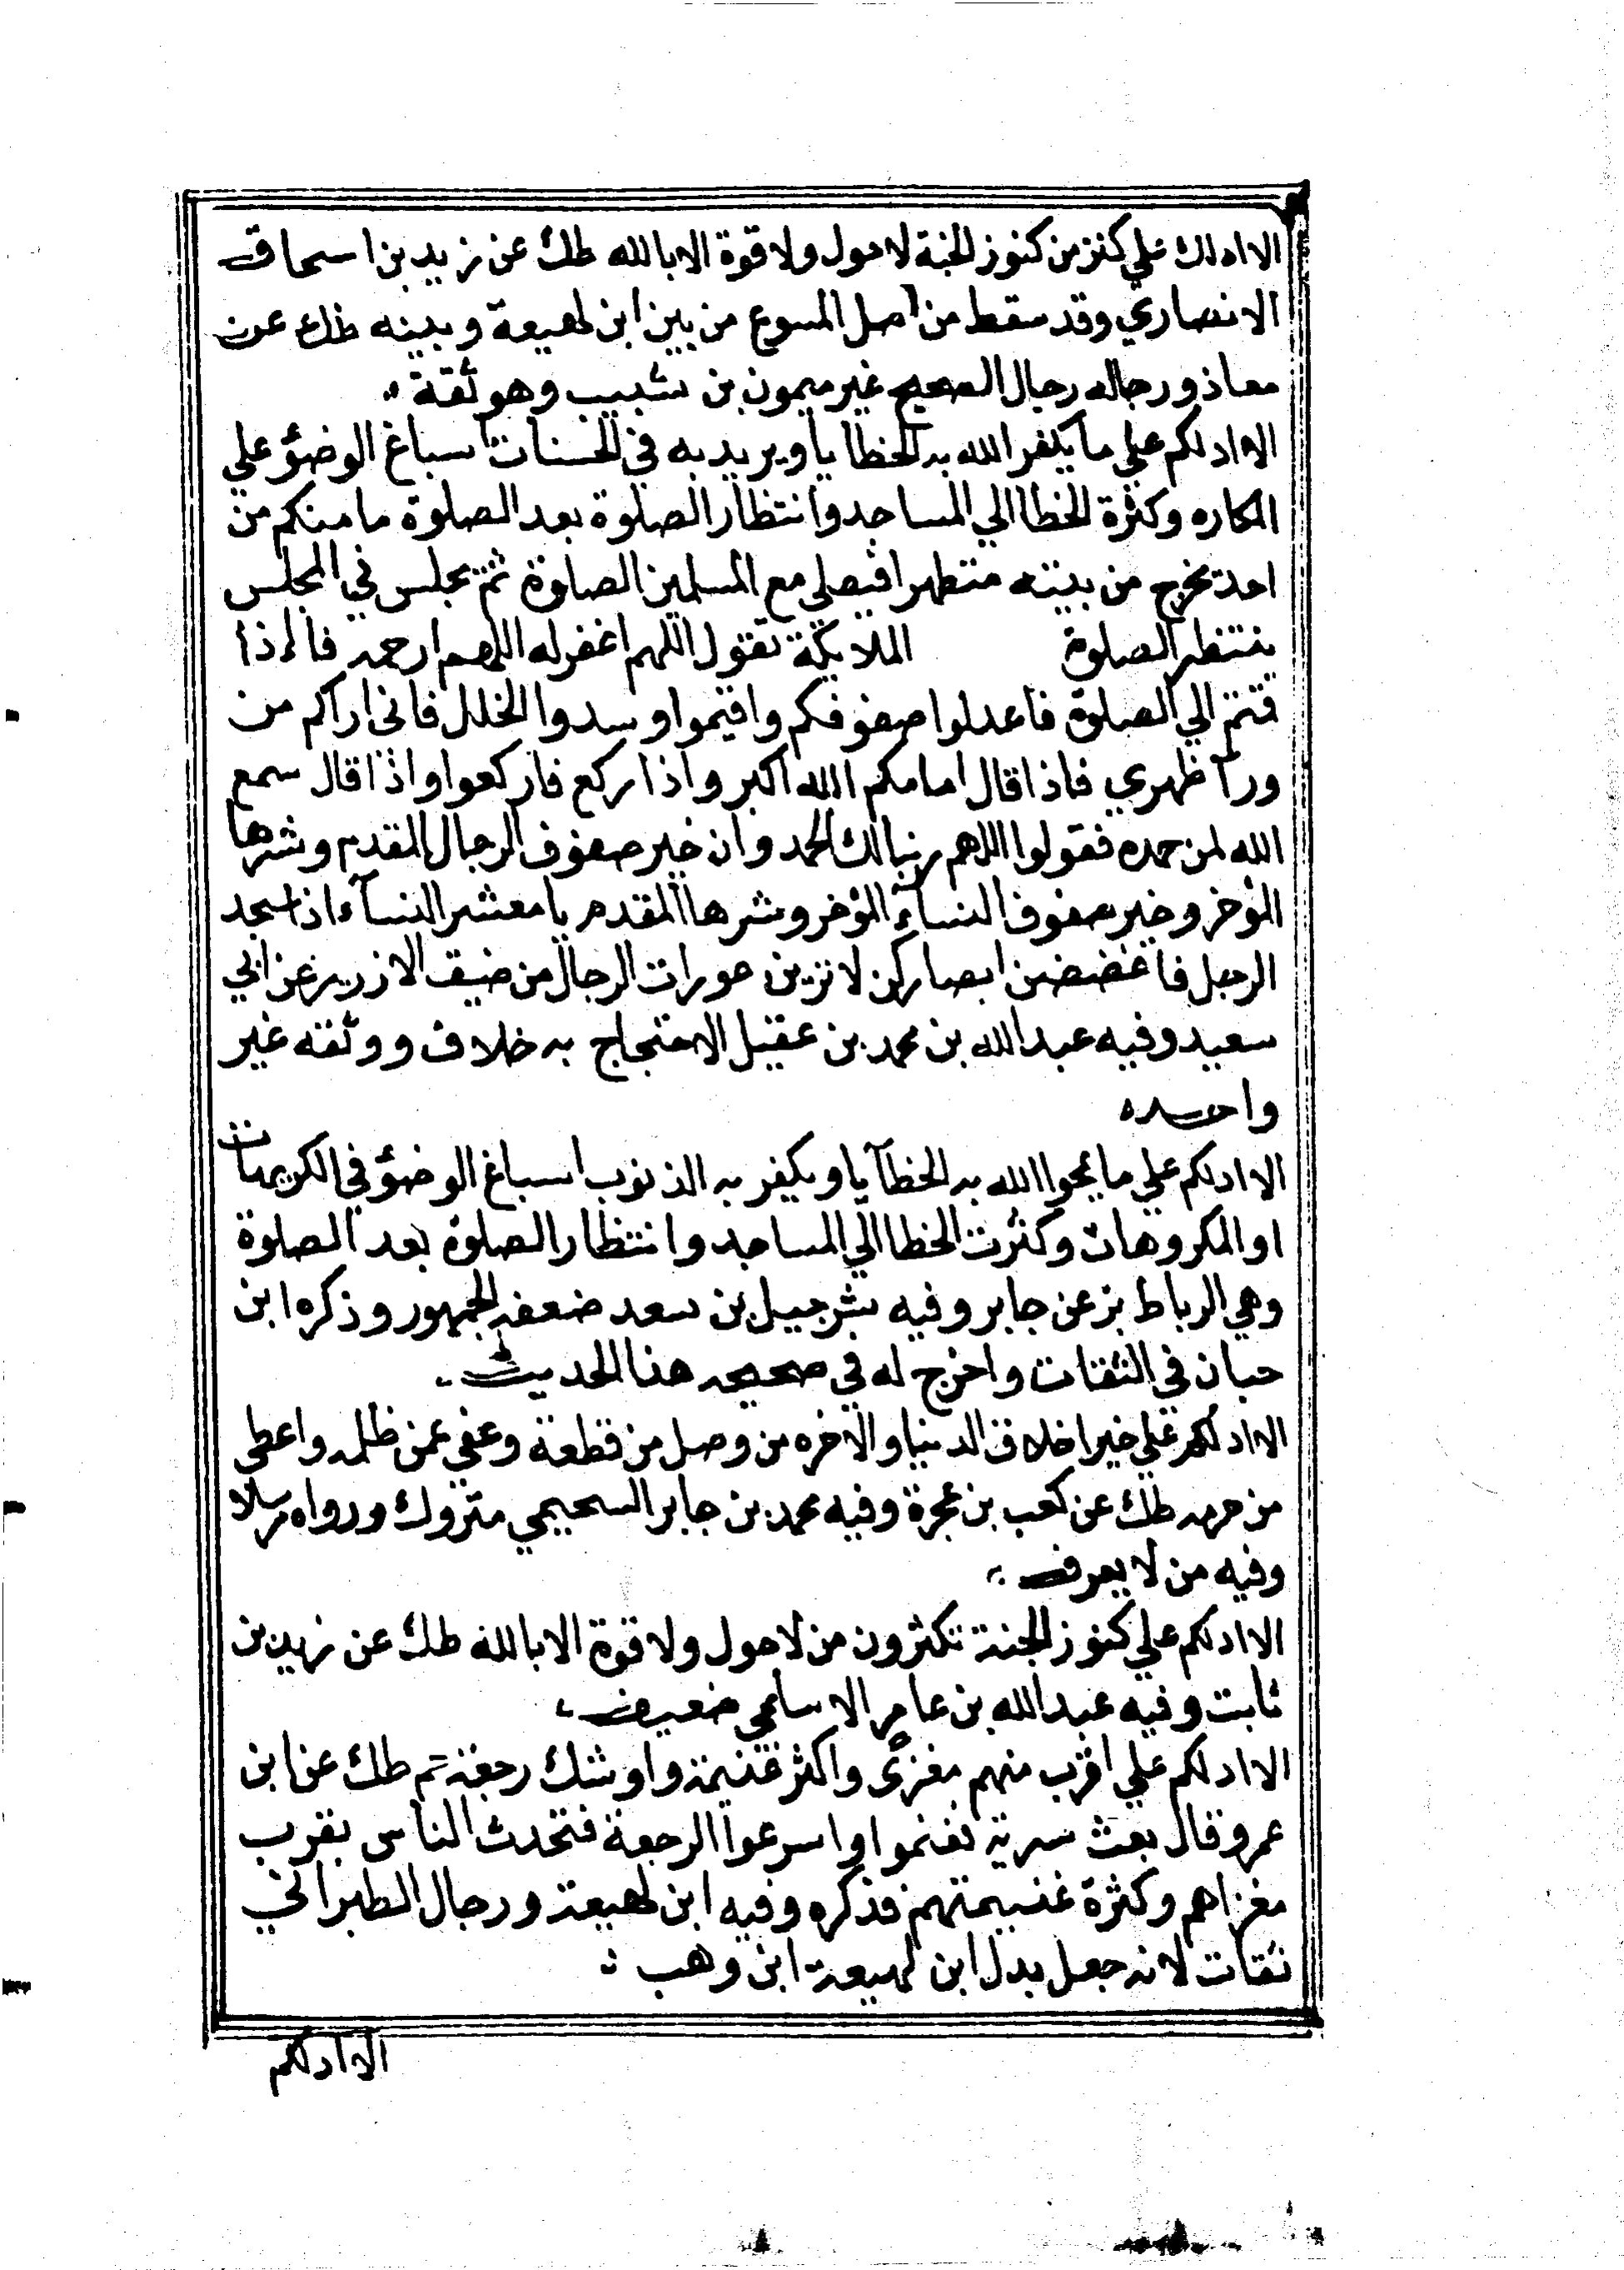 الا ادلك علي كنز من كنوز الجنة لا حول ولا قوة الا بالله طك عن زيد بن اسحاق
الانصاري وقد سقط من اصل المسوع من بين ابن لهيعة وبينه طك عن
معاذ ورجاله رجال الصحيح غير ميمون بن شبيب وهو ثقة
الا ادلكم علي ما يكفر الله به الخطايا ويزيد به في الحسنات اسباغ الوضؤ علي
المكاره وكثرة الخطا الي المساجد وانتظار الصلوة بعد الصلوة ما منكم من
احد يخرج من بيته متطهرا فيصلي مع المسلمين الصلوة ثم يجلس في المجلس
ينتظر الصلوة الملايكة تقول اللهم اغفر له اللهم ارحمه فااذا
قمتم الي الصلوة فاعدلوا صفوفكم واقيموا وسدوا الخلل فاني اراكم من
ورآ ظهري فاذا قال امامكم الله اكبر واذا ركع فاركعوا واذا قال سمع
الله لمن حمده فقولوا اللهم ربنا لك الحمد وان خير صفوف الرجال المقدم وشرها
المؤخر وخير صفوف النسآء المؤخر وشرها المقدم يا معشر النسآء اذا سجد
الرجل فاغضضن ابصاركن لا ترين عورات الرجال من ضيق الازر بز عن ابي
سعيد وفيه عبد الله بن محمد بن عقيل الاحتجاج به خلاف ووثقه غير
واحده
الا ادلكم علي ما يمحوا الله به الخطآيا ويكفر به الذنوب اسباغ الوضؤ في الكريهات
او المكروهات وكثرت الخطا الي المساجد وانتظار الصلوة بعد الصلوة
وهي الرباط بز عن جابر وفيه شرجيل بن سعد ضعفه الجمهور وذكره ابن
حبان في الثقات واخرج له في صحيحه هذا الحديث
الا ادلكم علي خير اخلاق الدنيا والاخره من وصل من قطعة وعفي عمن ظلمه واعطي
من حرمه طك عن كعب بن عجرة وفيه محمد بن جابر السحيمي متروك ورواه مرسلا
وفيه من لا يعرف
الا ادلكم علي كنوز الجنة تكثرون من لا حول ولا قوة الا بالله طك عن زيد بن
ثابت وفيه عبد الله بن عامر الاسلمي ضعيف
الا ادلكم علي اقرب منهم مغزي واكثر غنيمة واوشك رجعة حم طك عن ابن
عمرو قال بعث سرية فغنموا واسرعوا الرجعة فتحدث الناس بقرب
مغزاهم وكثرة غنيمتهم فذكره وفيه ابن لهيعة ورجال الطبراني
ثقات لانه جعل بدل ابن لهيعة ابن وهب
الا ادلكم